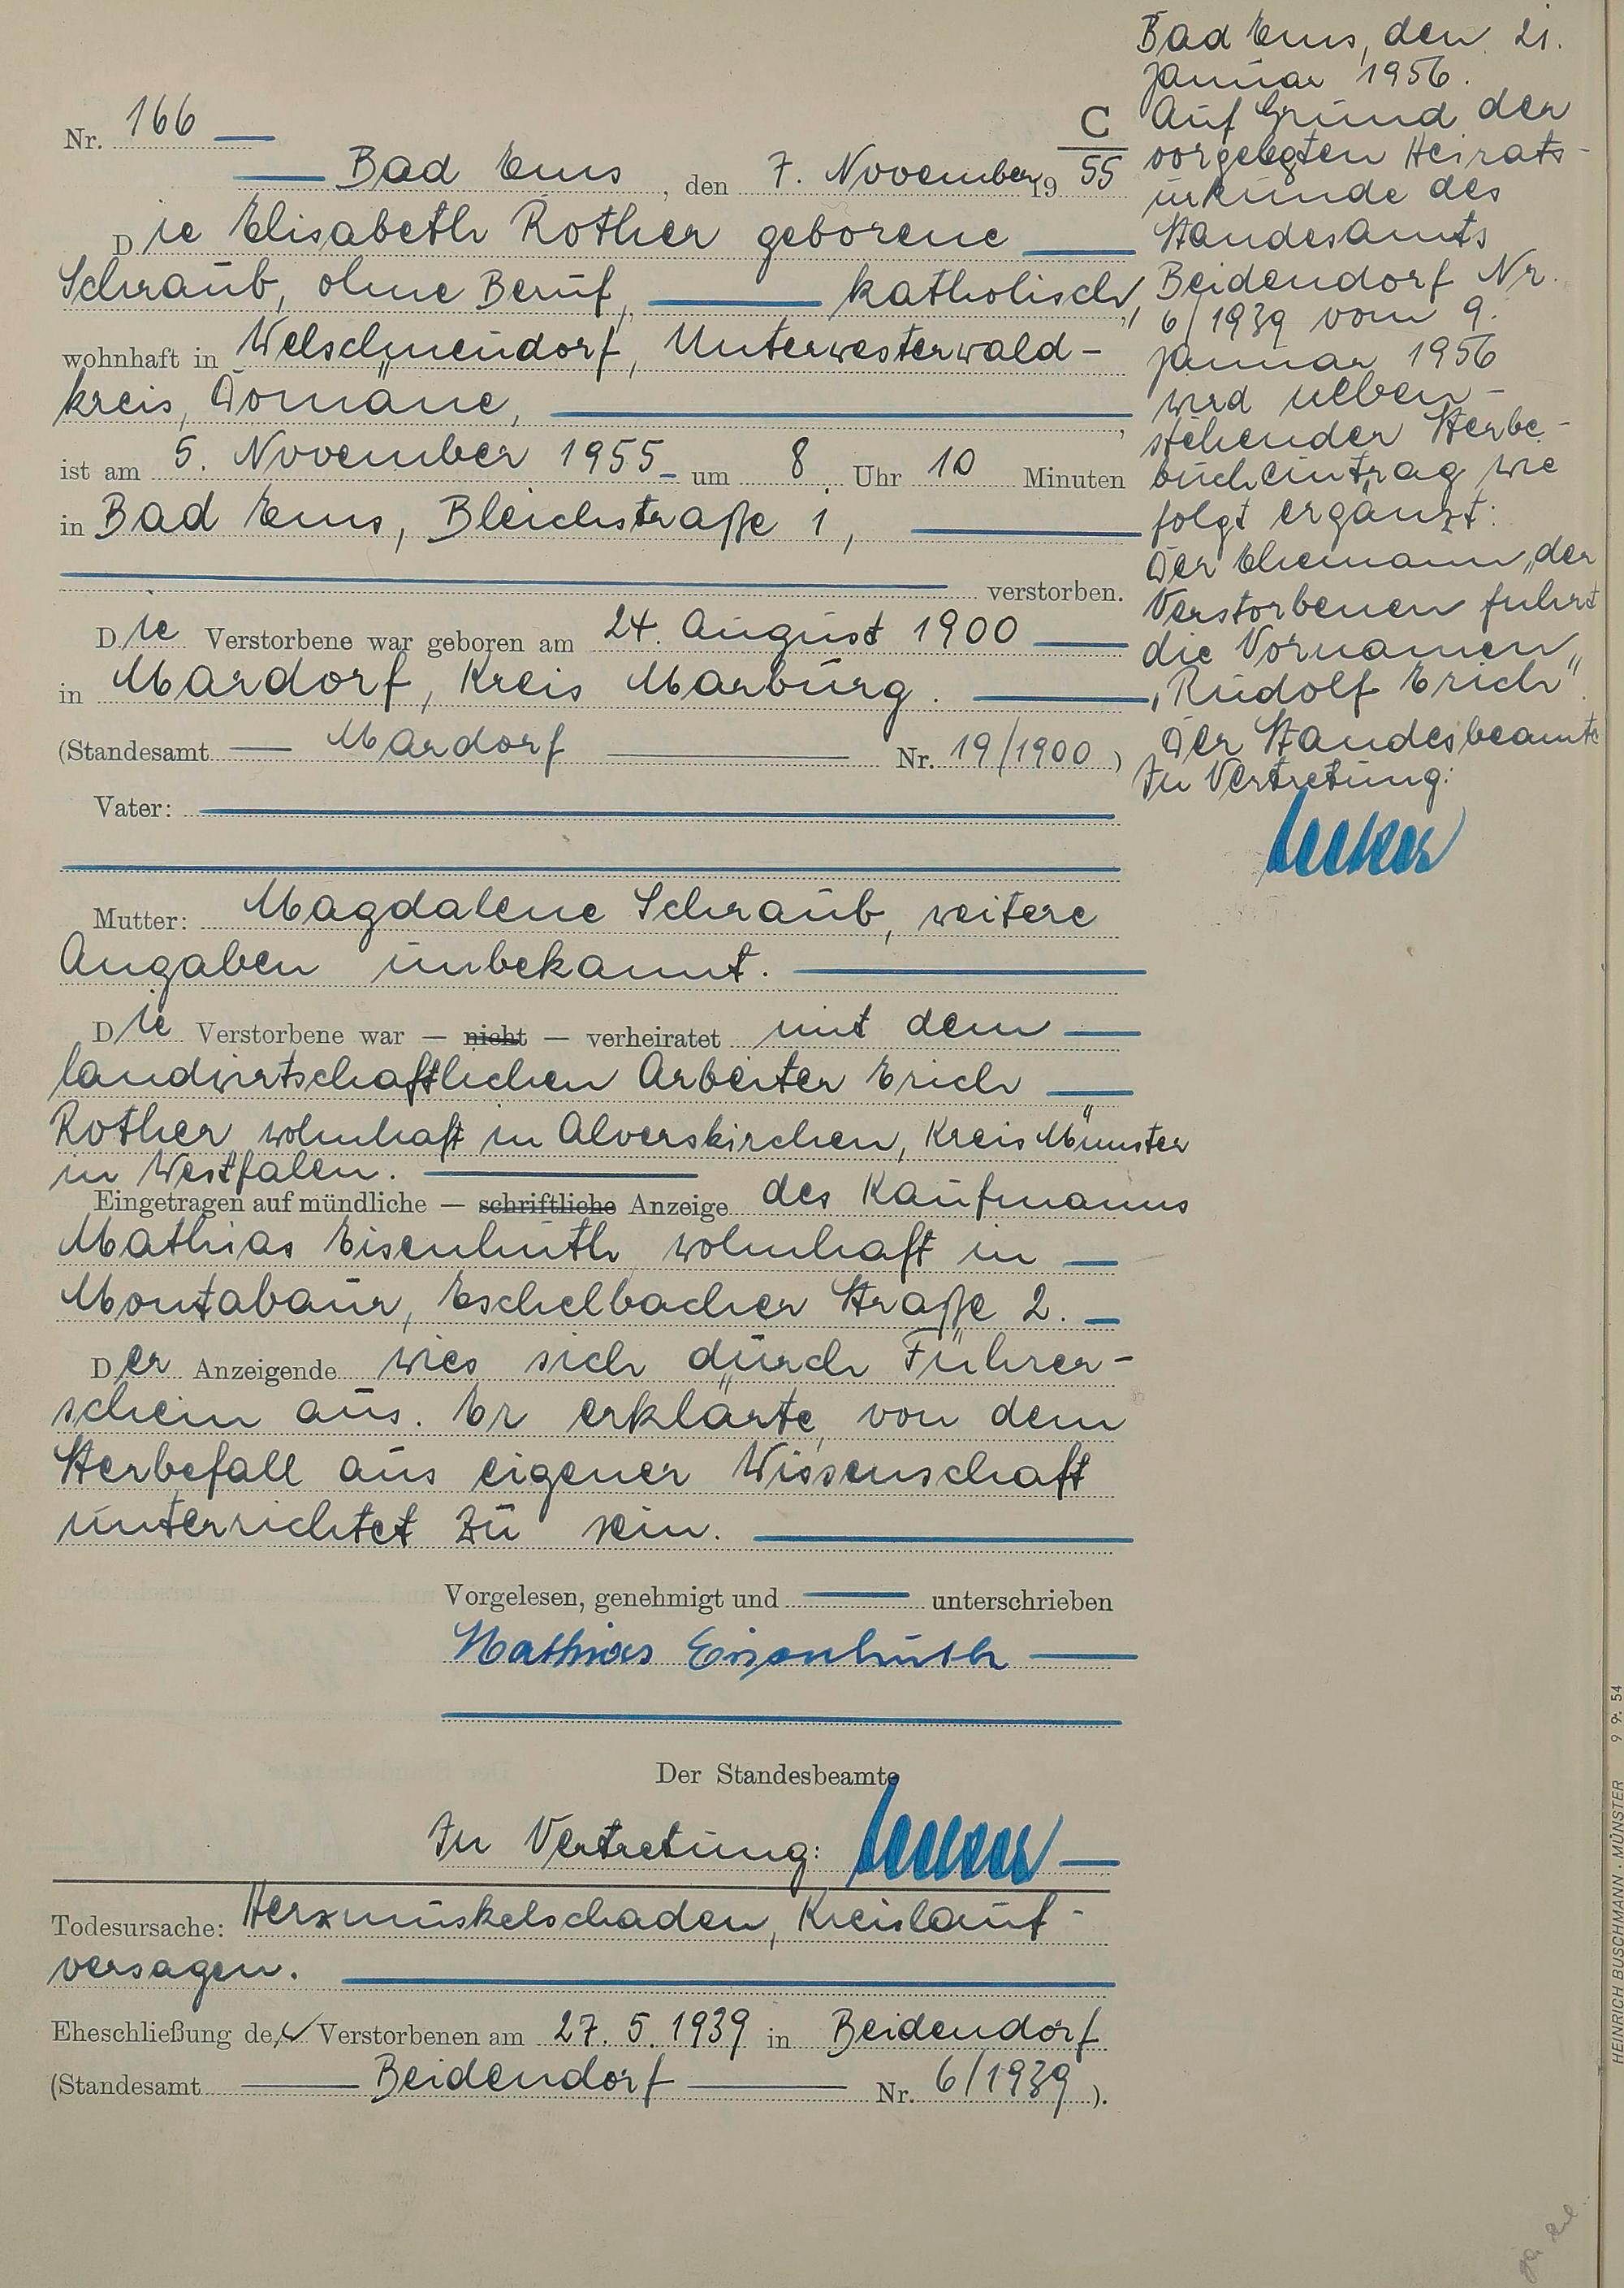 Nr. 166
C
Bad Ems, den 7. November 1955
Die Elisabeth Rother geborene
Schraub, ohne Beruf, katholisch,
wohnhaft in Welschneudorf, Unterwesterwald-
kreis, Domäne,
ist am 5. November 1955 um 8 Uhr 10 Minuten
in Bad Ems, Bleichstraße 1,
verstorben.
Die Verstorbene war geboren am 24. August 1900
in Mardorf, Kreis Marburg.
(Standesamt Mardorf Nr. 19/1900)
Vater:
Mutter: Magdalene Schraub, weitere
Angaben unbekannt.
Die Verstorbene war — nicht — verheiratet mit dem
landwirtschaftlichen Arbeiter Erich
Rother wohnhaft in Alverskirchen, Kreis Münster
in Westfalen.
Eingetragen auf mündliche — schriftliche Anzeige des Kaufmanns
Mathias Eisenhuth wohnhaft in
Montabaur, Eschelbacher Straße 2.
Der Anzeigende wies sich durch Führer-
schein aus. Er erklärte, von dem
Sterbefall aus eigener Wissenschaft
unterrichtet zu sein.
Vorgelesen, genehmigt und unterschrieben
Mathias Eisenhuth
Der Standesbeamte
In Vertretung:
Todesursache: Herzmuskelschaden, Kreislauf-
versagen.
Eheschließung der Verstorbenen am 27. 5. 1939 in Beidendorf
(Standesamt Beidendorf Nr. 6/1939).
Bad Ems, den 21.
Januar 1956.
Auf Grund der
vorgelegten Heirats-
urkunde des
Standesamts
Beidendorf Nr.
6/1939 vom 9.
Januar 1956
wird neben-
stehender Sterbe-
bucheintrag wie
folgt ergänzt:
Der Ehemann der
Verstorbenen führt
die Vornamen
"Rudolf Erich".
Der Standesbeamte
In Vertretung:
HEINRICH BUSCHMANN, MÜNSTER 9 9. 54